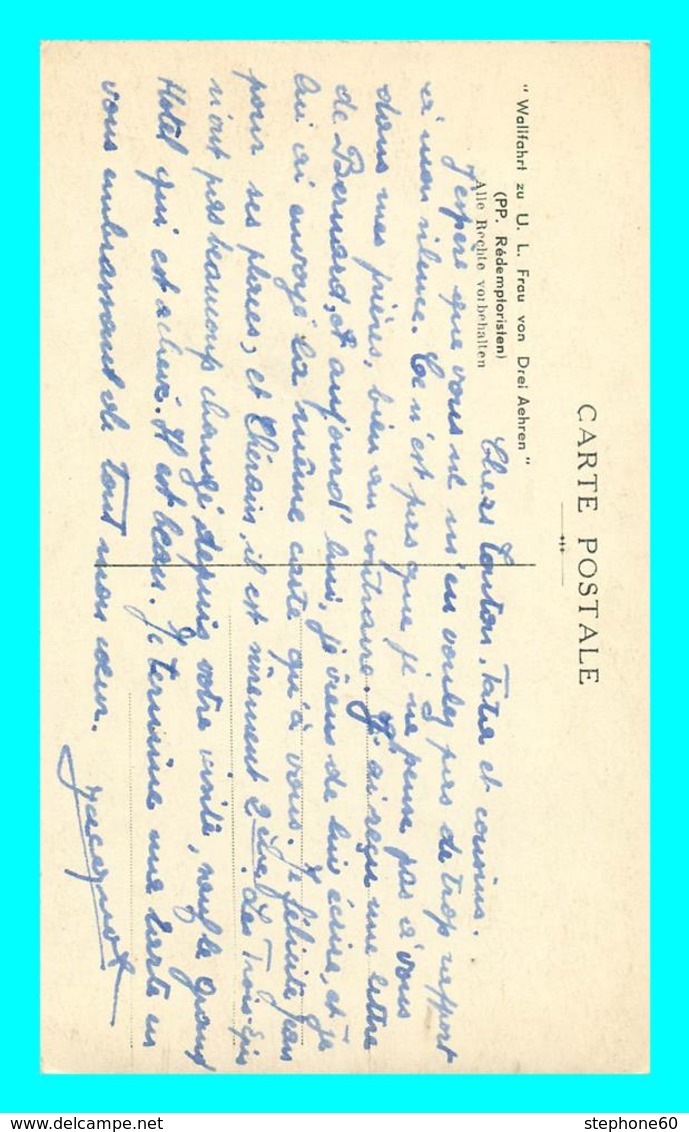 CARTE POSTALE
" Wallfahrt zu U. L. Frau von Drei Aehren "
(PP. Rédemptoristen)
Alle Rechte vorbehalten
Chers Tonton, Tatie et cousins.
J'espère que vous ne m'en voulez pas de trop rapport
à mon silence. Ce n'est pas que je ne pense pas à vous
dans mes prières, bien au contraire. J'ai reçu une lettre
de Bernard, et aujourd'hui, je viens de lui écrire, et je
lui ai envoyé la même carte qu'à vous. Je félicite Jean
pour ses places, et Chérain, il est sûrement 2e. Les Trois-Epis
n'ont pas beaucoup changé depuis votre visite, sauf le grand
Hotel qui est achevé. Il est beau. Je termine ma carte en
vous embrassant de tout mon cœur. Jacquot
stephone60